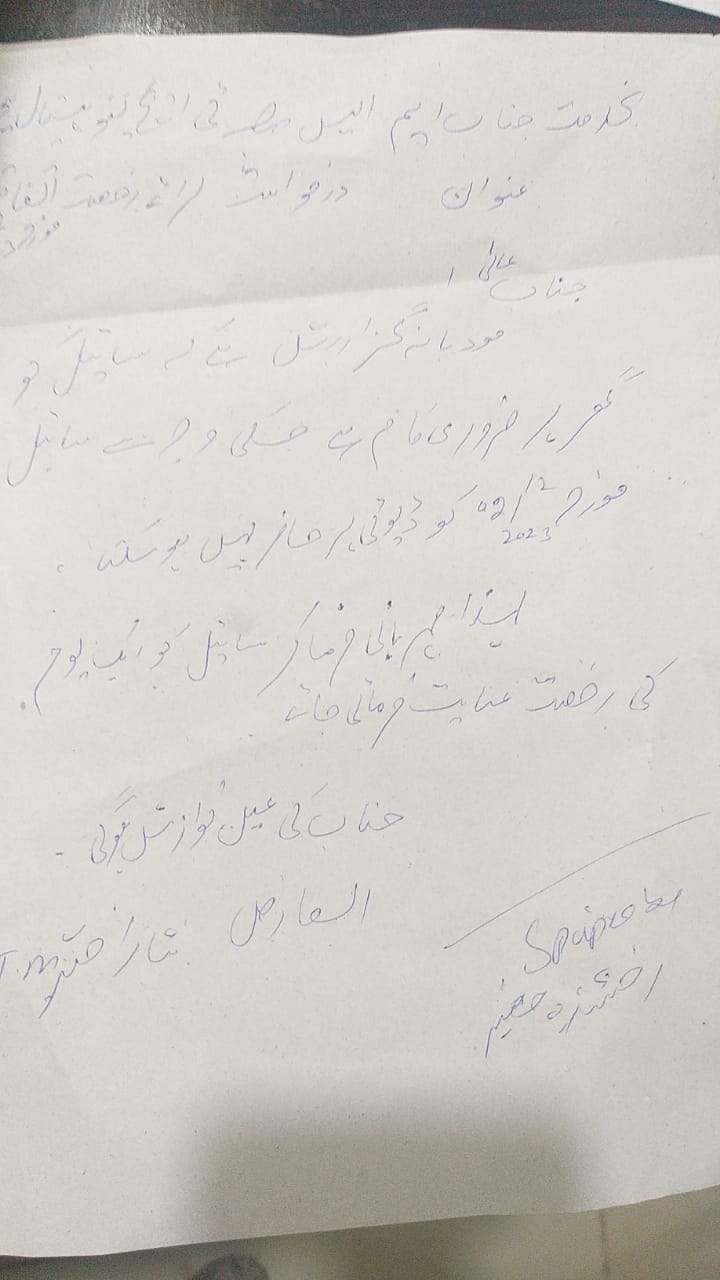 بخدمت جناب ایم ایس صاحب ٹی ایچ کیو ہسپتال
عنوان درخواست برائے رخصت اتفاقیہ
جناب عالی!
مودبانہ گزارش ہے کہ سائیل کو
گھر پر ضروری کام ہے جسکی وجہ سے سائیل
مورخہ 09/12 2023 کو ڈیوٹی پر حاضر نہیں ہو سکتا۔
لہذا مہربانی فرما کر سائیل کو ایک یوم
کی رخصت عنایت فرمائی جائے۔
جناب کی عین نوازش ہوگی۔
العارض